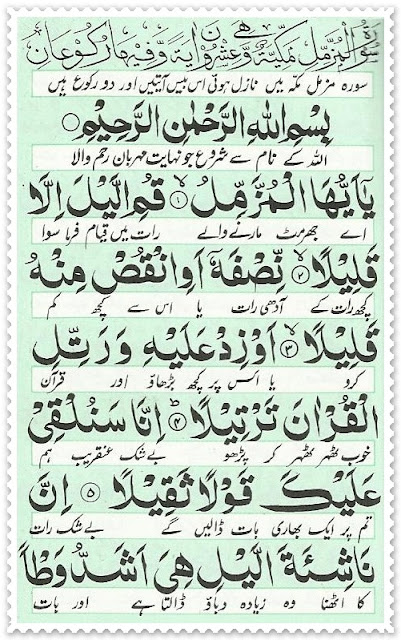 سورة المزمل مكية وهي عشرون اية وفيها ركوعان
سورہ مزمل مکہ میں نازل ہوئی اس بیس آیتیں اور دو رکوع ہیں
بِسْمِ اللهِ الرَّحْمٰنِ الرَّحِيْمِ
اللہ کے نام سے شروع جو نہایت مہربان رحم والا
يٰۤاَيُّهَا الْمُزَّمِّلُ ۙ‏﴿۱﴾ قُمِ الَّيْلَ اِلَّا
اے جھرمٹ مارنے والے رات میں قیام فرما سوا
قَلِيْلًا ۙ‏﴿۲﴾ نِّصْفَهٗۤ اَوِ انْقُصْ مِنْهُ
کچھ رات کے آدھی رات یا اس سے کچھ کم
قَلِيْلًا ۙ‏﴿۳﴾ اَوْ زِدْ عَلَيْهِ وَ رَتِّلِ
کرو یا اس پر کچھ بڑھاؤ اور قرآن
الْقُرْاٰنَ تَرْتِيْلًا ؕ‏﴿۴﴾ اِنَّا سَنُلْقِىْ
خوب ٹھہر ٹھہر کر پڑھو بےشک عنقریب ہم
عَلَيْكَ قَوْلًا ثَقِيْلًا ﴿۵﴾ اِنَّ
تم پر ایک بھاری بات ڈالیں گے بےشک رات
نَاشِئَةَ الَّيْلِ هِىَ اَشَدُّ وَطْاً
کا اٹھنا وہ زیادہ دباؤ ڈالتا ہے اور بات